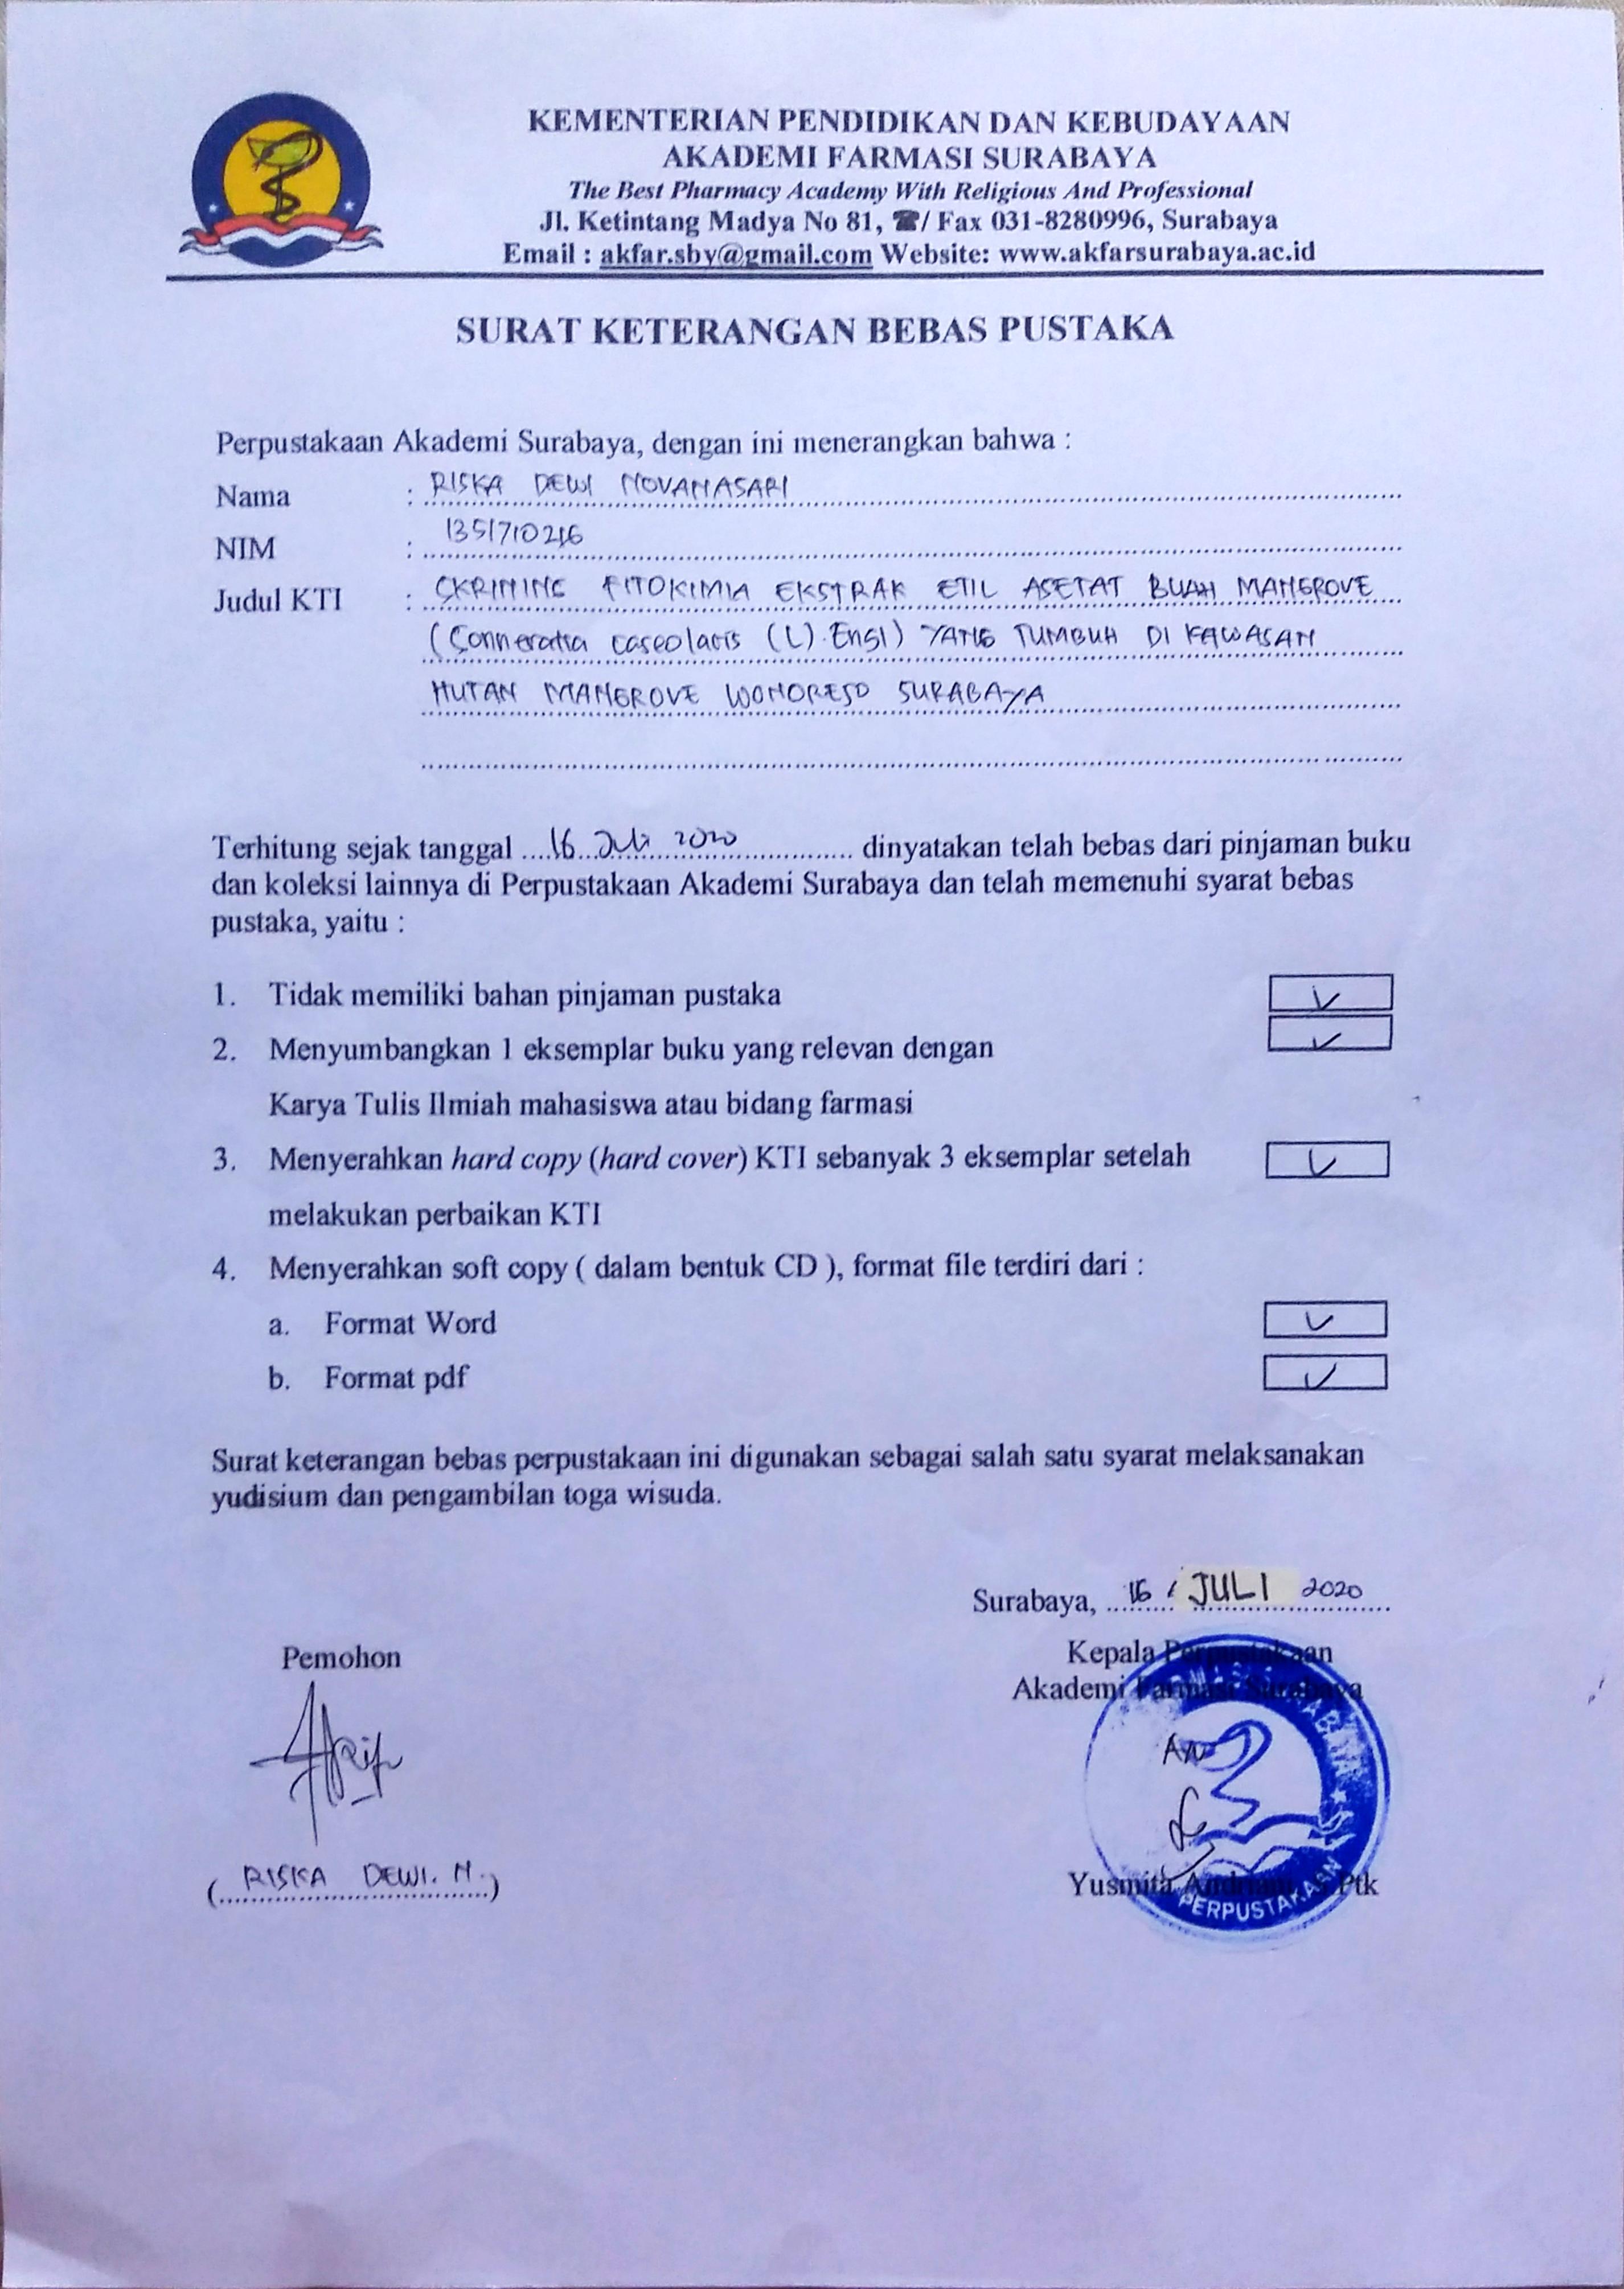 KEMENTERIAN PENDIDIKAN DAN KEBUDAYAAN
AKADEMI FARMASI SURABAYA
The Best Pharmacy Academy With Religious And Professional
Jl. Ketintang Madya No 81, ☎/ Fax 031-8280996, Surabaya
Email : akfar.sby@gmail.com Website: www.akfarsurabaya.ac.id
SURAT KETERANGAN BEBAS PUSTAKA
Perpustakaan Akademi Surabaya, dengan ini menerangkan bahwa :
Nama : RISKA DEWI NOVANASARI
NIM : 1351710216
Judul KTI : SKRINING FITOKIMIA EKSTRAK ETIL ASETAT BUAH MANGROVE
(Sonneratia caseolaris (L). Engl) YANG TUMBUH DI KAWASAN
HUTAN MANGROVE WONOREJO SURABAYA
Terhitung sejak tanggal 16 Juli 2020 dinyatakan telah bebas dari pinjaman buku
dan koleksi lainnya di Perpustakaan Akademi Surabaya dan telah memenuhi syarat bebas
pustaka, yaitu :
1. Tidak memiliki bahan pinjaman pustaka
2. Menyumbangkan 1 eksemplar buku yang relevan dengan
Karya Tulis Ilmiah mahasiswa atau bidang farmasi
3. Menyerahkan hard copy (hard cover) KTI sebanyak 3 eksemplar setelah
melakukan perbaikan KTI
4. Menyerahkan soft copy ( dalam bentuk CD ), format file terdiri dari :
a. Format Word
b. Format pdf
Surat keterangan bebas perpustakaan ini digunakan sebagai salah satu syarat melaksanakan
yudisium dan pengambilan toga wisuda.
Surabaya, 16 / JULI 2020
Pemohon
Kepala Perpustakaan
Akademi Farmasi Surabaya
AN
(RISKA DEWI. N.)
Yusmita Andriani, S.Ptk
PERPUSTAKAAN